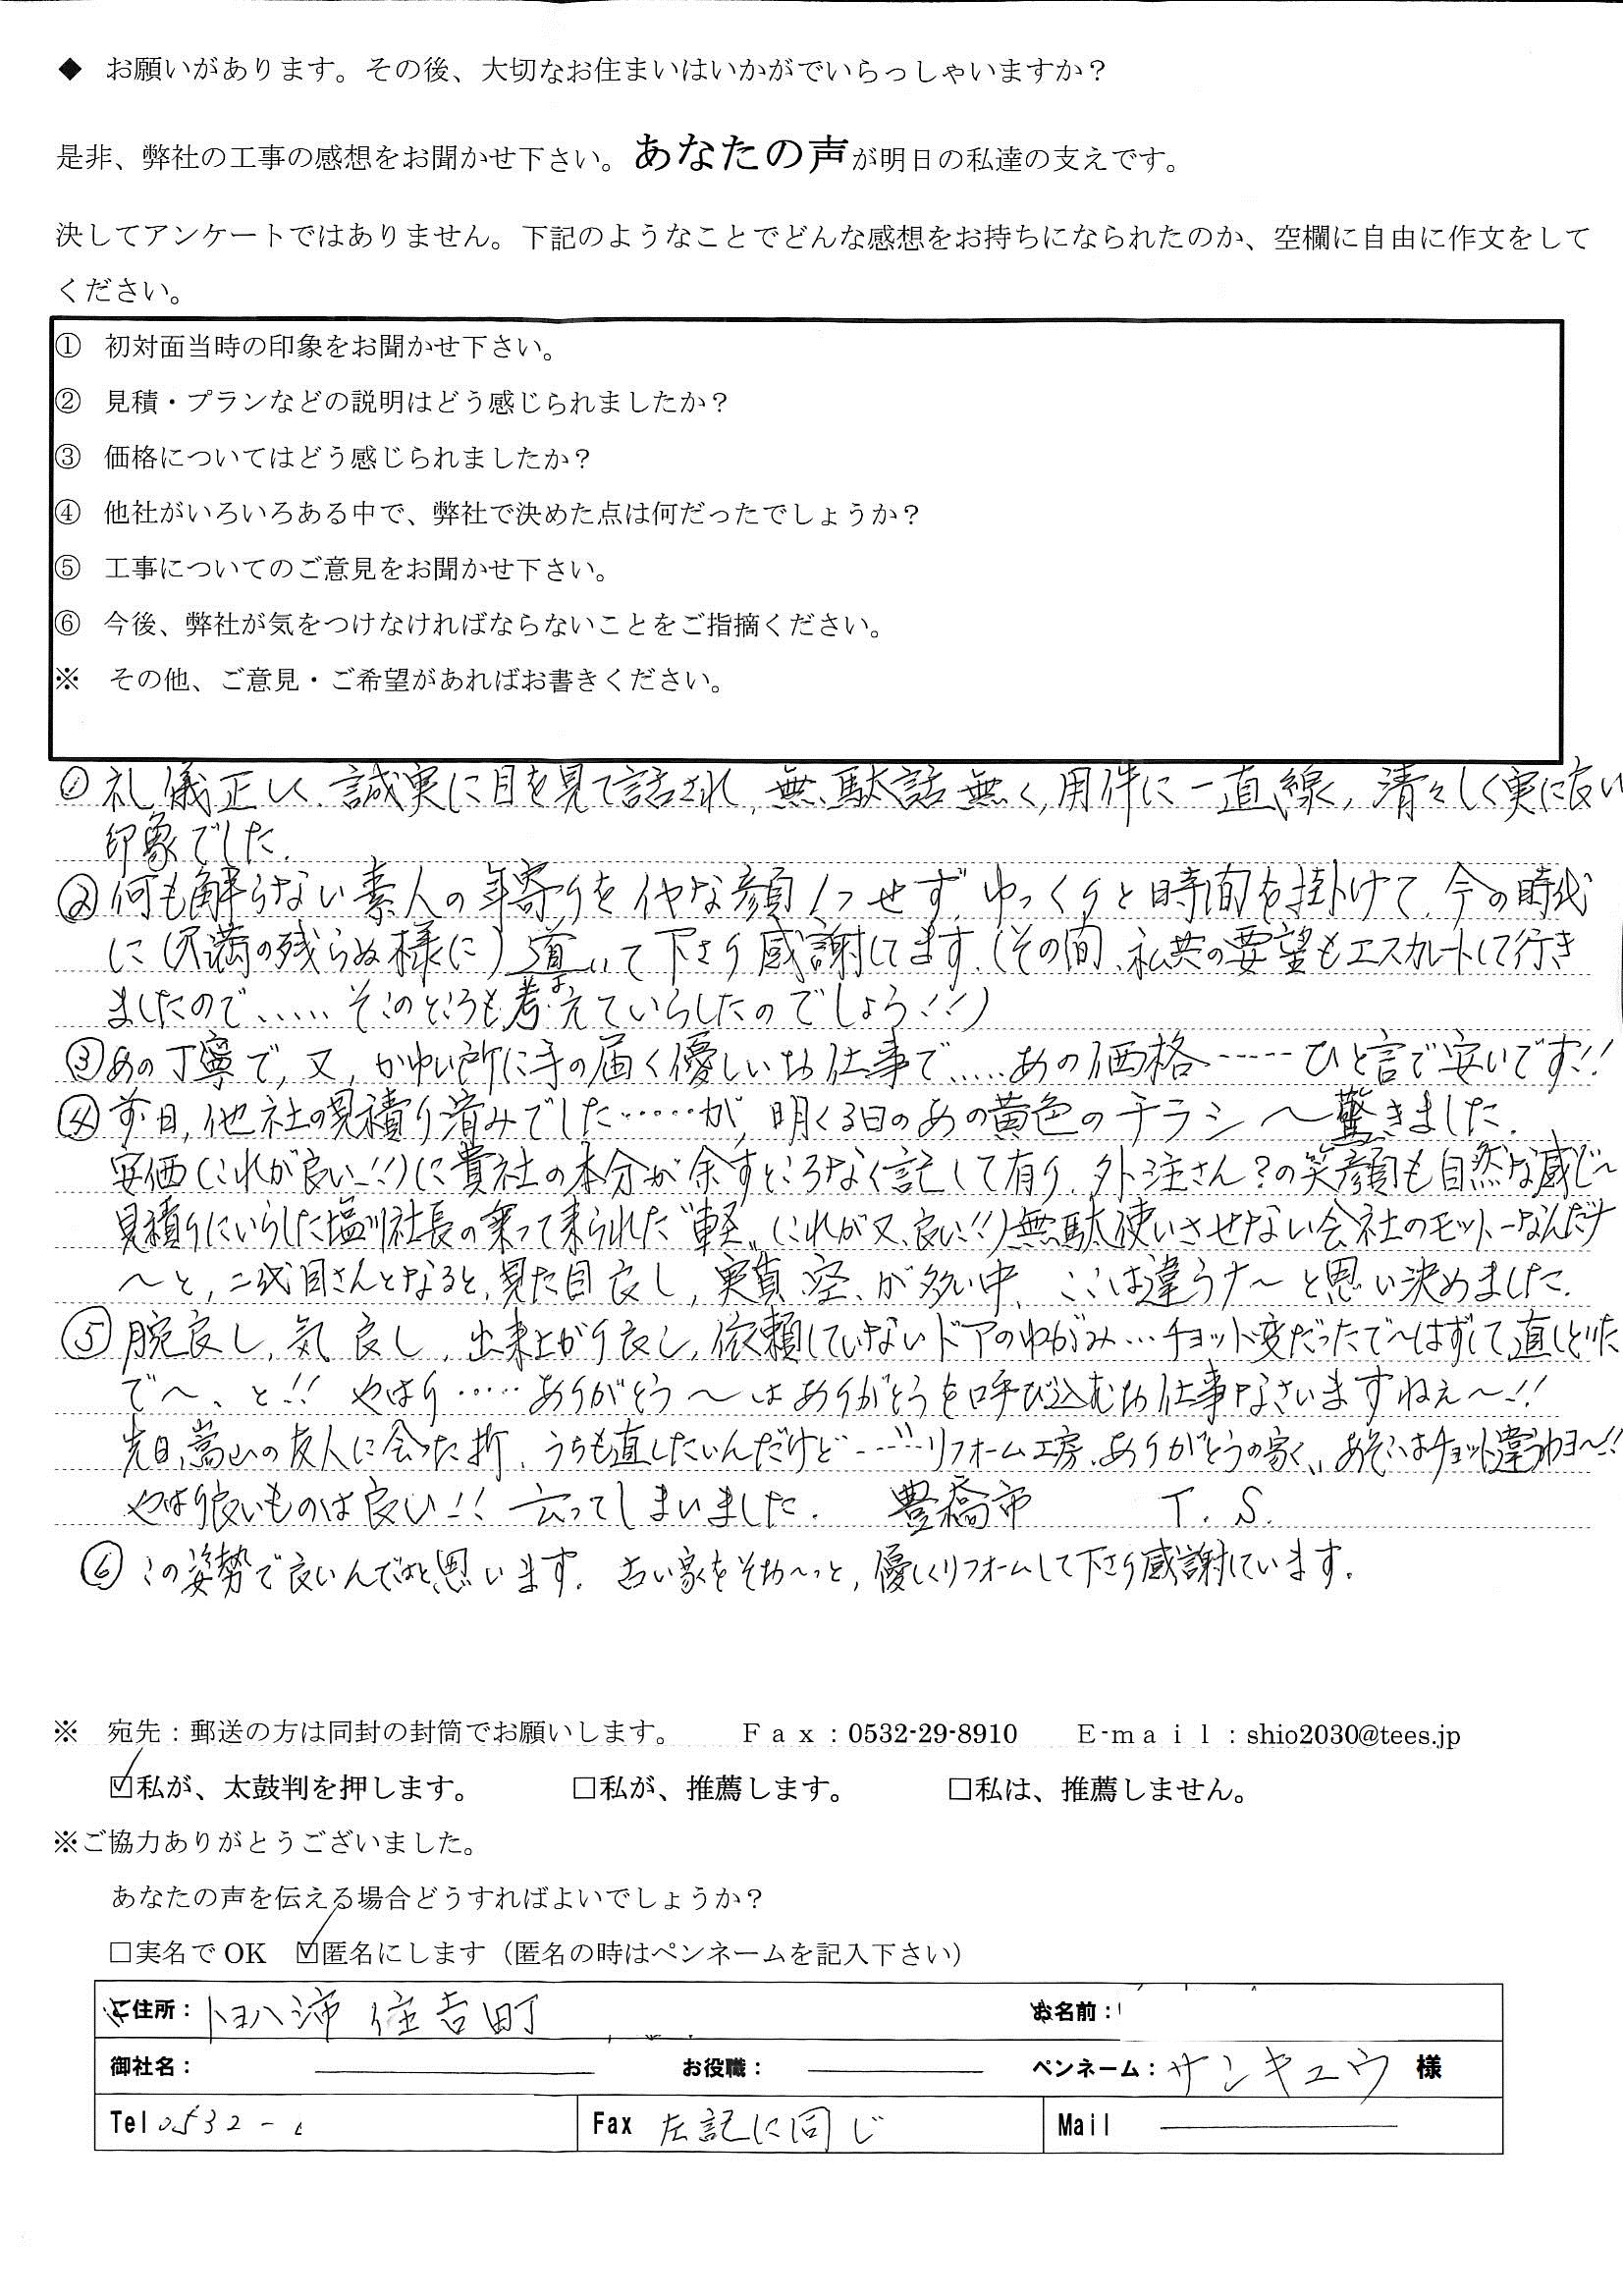 ◆ お願いがあります。その後、大切なお住まいはいかがでいらっしゃいますか？
是非、弊社の工事の感想をお聞かせ下さい。あなたの声が明日の私達の支えです。
決してアンケートではありません。下記のようなことでどんな感想をお持ちになられたのか、空欄に自由に作文をして
ください。
① 初対面当時の印象をお聞かせ下さい。
② 見積・プランなどの説明はどう感じられましたか？
③ 価格についてはどう感じられましたか？
④ 他社がいろいろある中で、弊社で決めた点は何だったでしょうか？
⑤ 工事についてのご意見をお聞かせ下さい。
⑥ 今後、弊社が気をつけなければならないことをご指摘ください。
※ その他、ご意見・ご希望があればお書きください。
①礼儀正しく、誠実に目を見て話され、無駄話無く、用件に一直線、清々しく実に良い
印象でした.
②何も解らない素人の年寄りをイヤな顔1つせず、ゆっくりと時間を掛けて、今の時代
に（不満の残らぬ様に）導いて下さり感謝してます.（その間、私共の要望もエスカレートして行き
ましたので、..... そこのところも考えていらしたのでしょう!!）
③あの丁寧で, 又, かゆい所に手の届く優しいお仕事で.....あの価格‥‥‥ひと言で安いです!!
④前日, 他社の見積り済みでした‥‥‥が, 明くる日のあの黄色のチラシ〜驚きました.
安価（これが良い!!）に貴社の本分が余すところなく記して有り、外注さん?の笑顔も自然な感じ〜
見積りにいらした塩川社長の乗って来られた〝軽〟（これが又、良い!!）無駄使いさせない会社のモットーなんだナ
〜と, 二代目さんともなると、見た目良し, 実質、空、が多い中、ここは違うナ〜と思い決めました.
⑤腕良し, 気良し, 出来上がり良し, 依頼していないドアのゆがみ…チョット変だったで〜はずして直しといた
で〜、と!! やはり‥‥‥ありがとう〜はありがとうを呼び込むお仕事なさいますねぇ〜!!
先日、嵩山の友人に会った折、うちも直したいんだけど‥‥‥リフォーム工房、ありがとうの家く、あそこはチョット違うわヨ〜!!
やはり良いものは良い!! 云ってしまいました. 豊橋市 T. S.
⑥この姿勢で良いんではと思います. 古い家をそお〜っと, 優しくリフォームして下さり感謝しています.
※ 宛先：郵送の方は同封の封筒でお願いします。 Ｆａｘ：0532-29-8910 Ｅ-ｍａｉｌ：shio2030@tees.jp
☑私が、太鼓判を押します。 □私が、推薦します。 □私は、推薦しません。
※ご協力ありがとうございました。
あなたの声を伝える場合どうすればよいでしょうか？
□実名でOK ☑匿名にします（匿名の時はペンネームを記入下さい）
ご住所： トヨハシ市 住吉町 お名前：
御社名： お役職： ペンネーム：サンキュウ 様
Tel 0532 - Fax 左記に同じ Mail